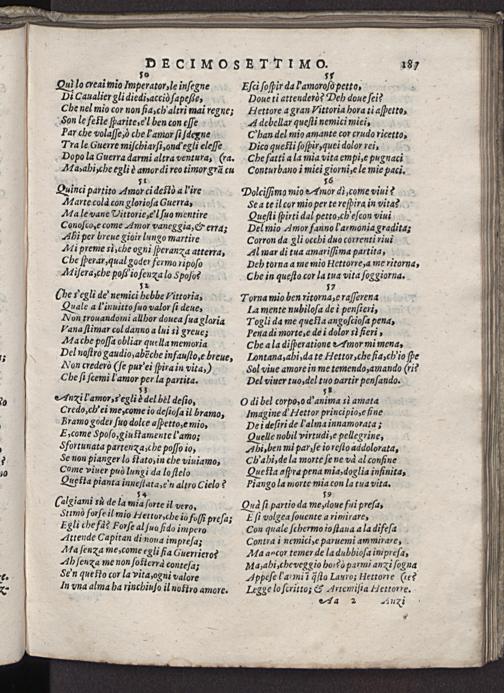 DECIMOSETTIMO. 187
50
Quì lo creai mio Imperator, le insegne
Di Caualier gli diedi, acciò sapeste,
Che nel mio cor non sia, ch'altri mai regne;
Son le feste sparite, e'l ben con esse
Par che volasse, ò che l'amor si sdegne
Tra le Guerre mischiarsi, ond'egli elesse
Dopo la Guerra darmi altra ventura, (ra.
Ma, ahi, che egli è amor di reo timor grã cu
51
Quinci partito Amor ci destò a l'ire
Marte colà con gloriosa Guerra,
Ma le vane Vittorie, e'l suo mentire
Conosco, e come Amor vaneggia, & erra;
Ahi per breue gioir lungo martire
Mi preme sì, che ogni speranza atterra,
Che sperar, qual goder fermo riposo
Misera, che poss'io senza lo Sposo?
52
Che s'egli de' nemici hebbe Vittoria,
Quale a l'inuitto suo valor si deue,
Non trouandomi allhor doue a sua gloria
Vana stimar col danno a lui sì greue;
Ma che possa obliar quella memoria
Del nostro gaudio, abẽche infausto, e breue,
Non crederò (se pur'ei spira in vita,)
Che si scemi l'amor per la partita.
53
Anzi l'amor, s'egli è del bel desio,
Credo, ch'ei me, come io desiosa il bramo,
Bramo goder suo dolce aspetto, e mio,
E, come Sposo, giustamente l'amo;
Sfortunata partenza, che posso io,
Se non pianger lo stato, in che viuiamo,
Come viuer può lungi da lo stelo
Questa pianta innestata, e'n altro Cielo?
54
Calgiami sù de la mia sorte il vero,
Stimò forse il mio Hettor, che io fossi presa;
Egli che fà? Forse al suo fido impero
Attende Capitan di noua impresa;
Ma senza me, come egli fia Guerriero?
Ah senza me non sosterrà contesa;
Se'n questo cor la vita, ogni valore
In vna alma ha rinchiuso il nostro amore.
55
Esci sospir da l'amoroso petto,
Doue ti attenderò? Deh doue sei?
Hettore a gran Vittoria hora ti aspetto,
A debellar questi nemici miei,
C'han del mio amante cor crudo ricetto,
Dico questi sospir, quei dolor rei,
Che fatti a la mia vita empi, e pugnaci
Conturbano i miei giorni, e le mie paci.
56
Dolcissimo mio Amor dì, come viui?
Se a te il cor mio per te respira in vita?
Questi spirti dal petto, ch'escon viui
Del mio Amor fanno l'armonia gradita;
Corron da gli occhi duo correnti riui
Al mar di tua amarissima partita,
Deh torna a me mio Hettorre, a me ritorna,
Che in questo cor la tua vita soggiorna.
57
Torna mio ben ritorna, e rasserena
La mente nubilosa de i pensieri,
Togli da me questa angosciosa pena,
Pena di morte, e de i dolor sì fieri,
Che a la disperatione Amor mi mena,
Lontana, ahi, da te Hettor, che fia, ch'io spe
Sol viue amore in me temendo, amando (ri?
Del viuer tuo, del tuo partir pensando.
58
O di bel corpo, ò d'anima sì amata
Imagine d'Hettor principio, e fine
De i desiri de l'alma innamorata;
Quelle nobil virtudi, e pellegrine,
Ahi, ben mi par, se io resto addolorata,
Ch'ahi, de la morte se ne và al confine
Questa aspra pena mia, doglia infinita,
Piango la morte mia con la tua vita.
59
Quà si partio da me, doue fui presa,
E si volgea souente a rimirare,
Con quale schermo io staua a la difesa
Contra i nemici, e paruemi ammirare,
Ma ancor temer de la dubbiosa impresa,
Ma, ahi, che veggio hor? ò parmi anzi sogna
Appese l'armi ĩ q̃sto Lauro; Hettorre (re?
Legge lo scritto; & Artemisia Hettorre.
Aa 2 Anzi